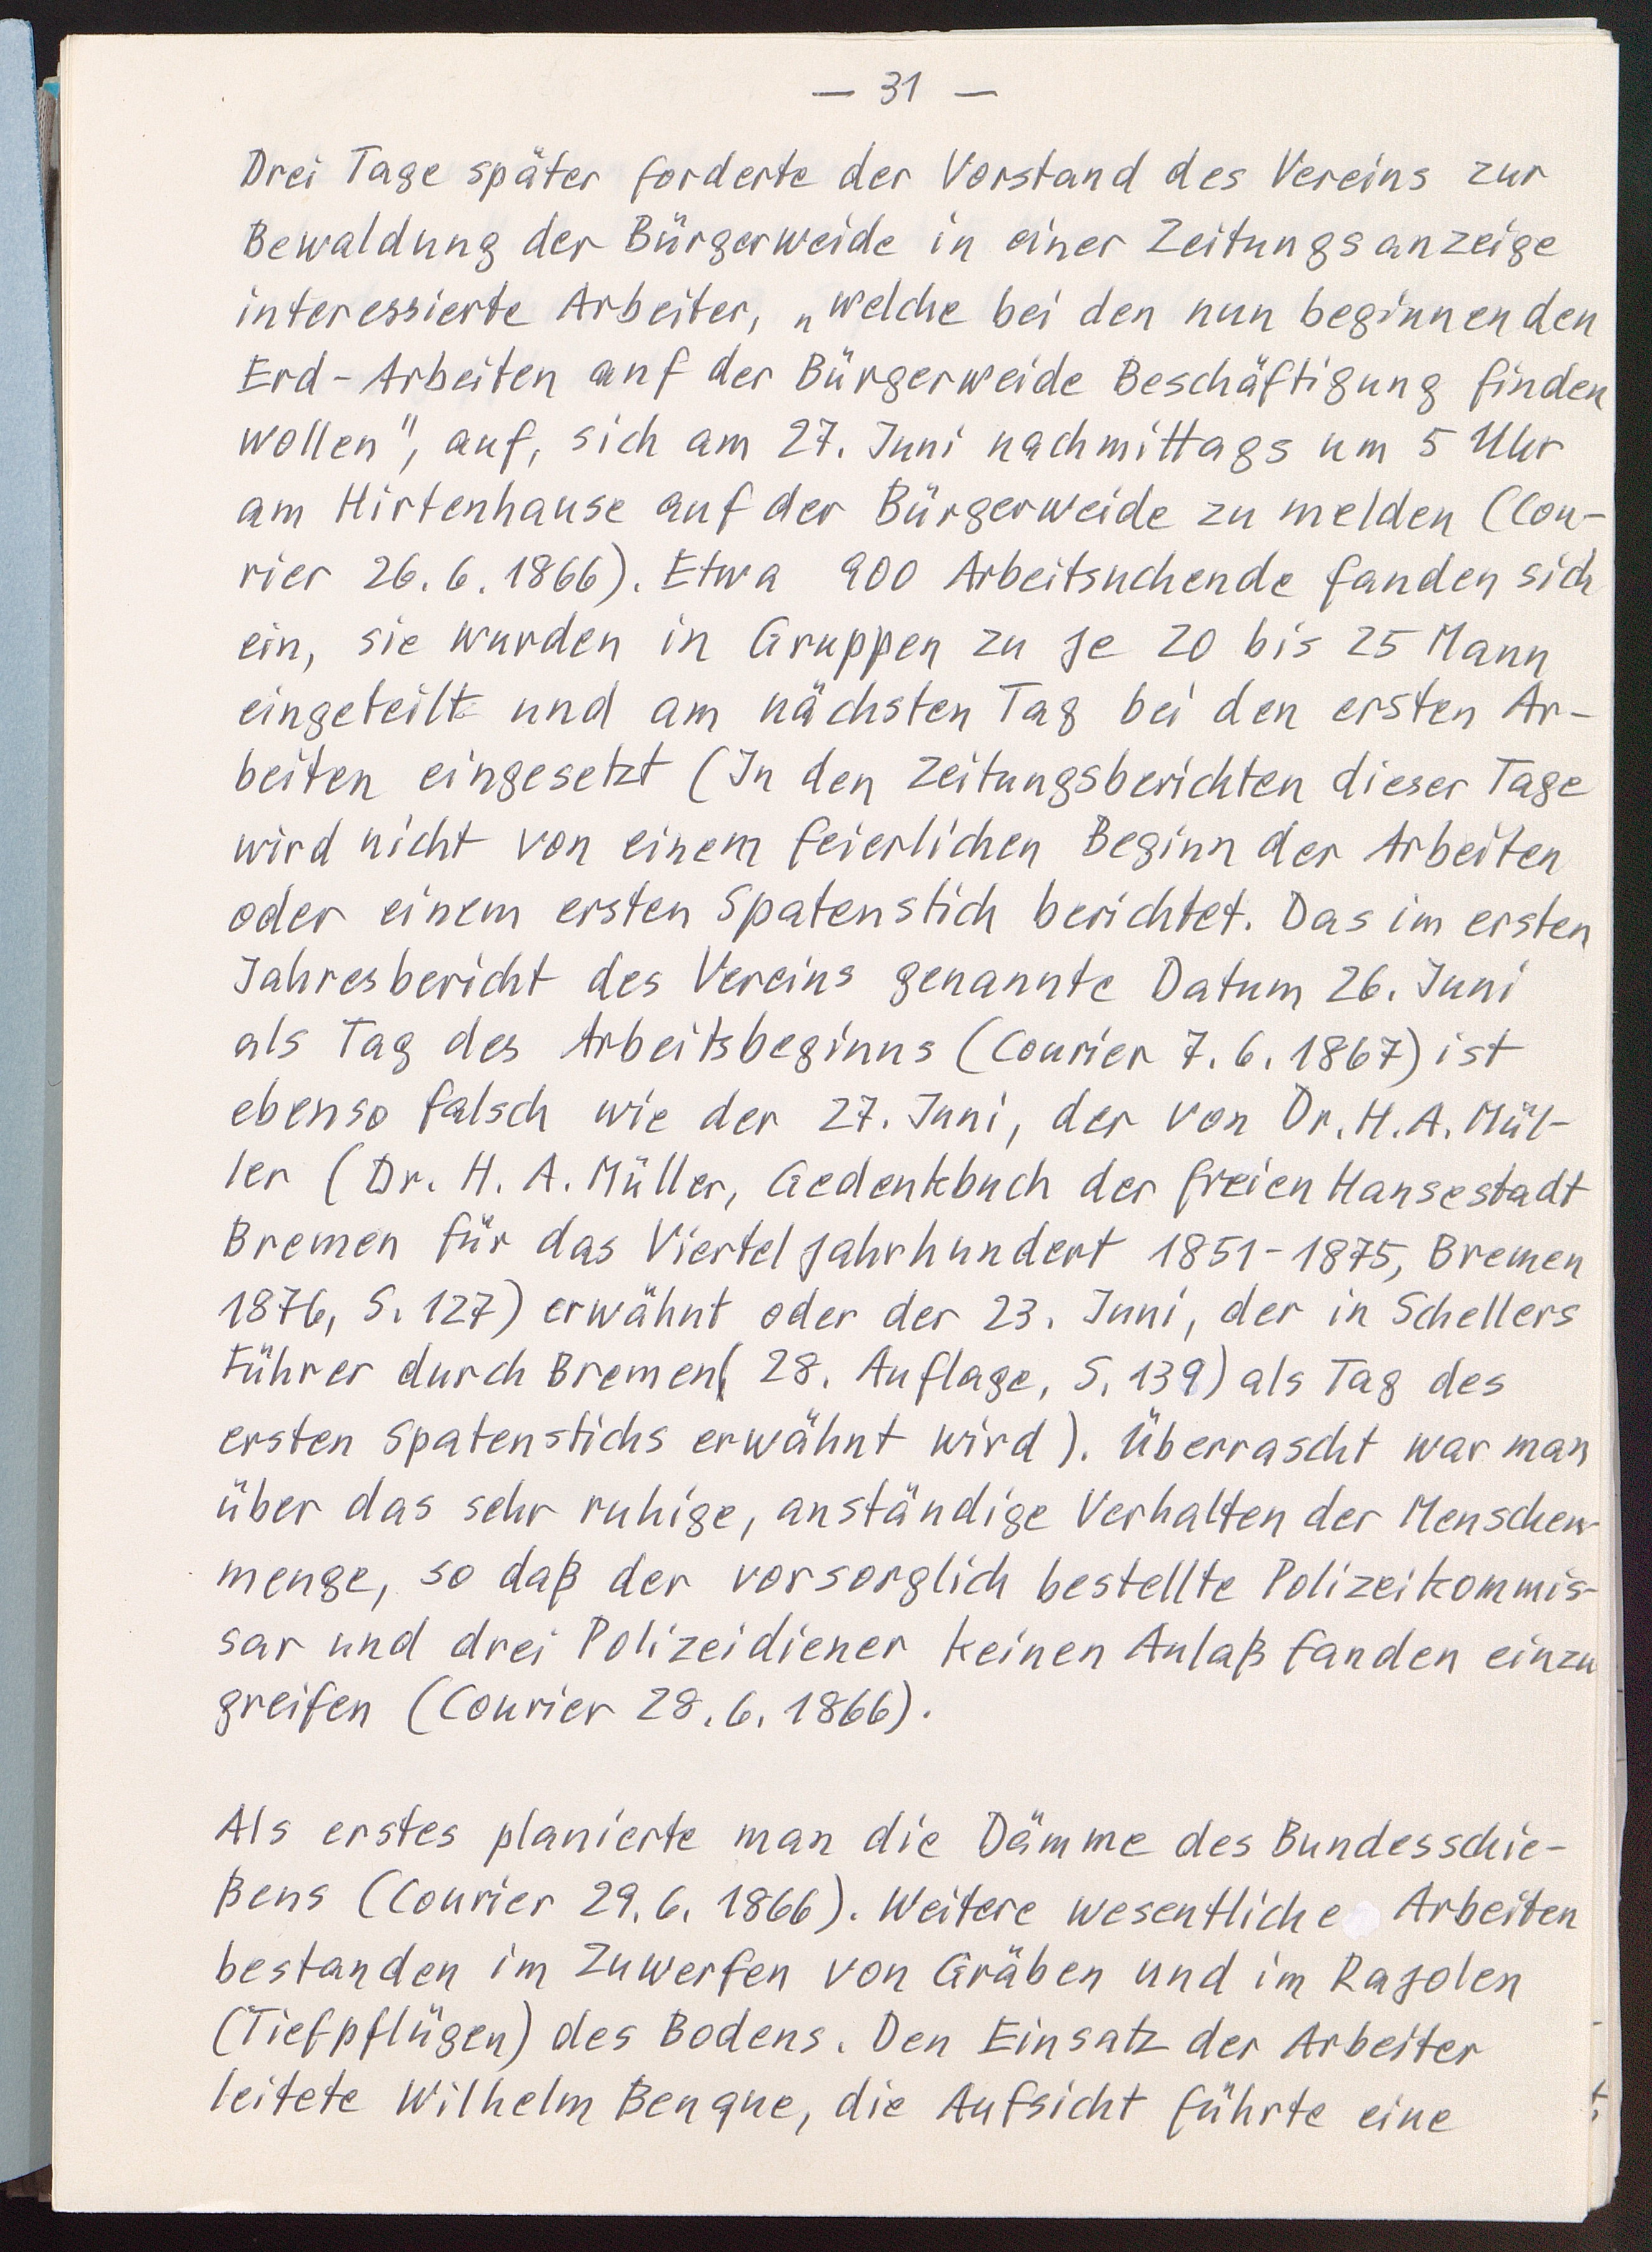 — 31 —
Drei Tage später forderte der Vorstand des Vereins zur
Bewaldung der Bürgerweide in einer Zeitungsanzeige
interessierte Arbeiter, „welche bei den nun beginnenden
Erd-Arbeiten auf der Bürgerweide Beschäftigung finden
wollen", auf, sich am 27. Juni nachmittags um 5 Uhr
am Hirtenhause auf der Bürgerweide zu melden (Cou-
rier 26.6.1866). Etwa 900 Arbeitsuchende fanden sich
ein, sie wurden in Gruppen zu je 20 bis 25 Mann
eingeteilt und am nächsten Tag bei den ersten Ar-
beiten eingesetzt (In den Zeitungsberichten dieser Tage
wird nicht von einem feierlichen Beginn der Arbeiten
oder einem ersten Spatenstich berichtet. Das im ersten
Jahresbericht des Vereins genannte Datum 26. Juni
als Tag des Arbeitsbeginns (Courier 7.6.1867) ist
ebenso falsch wie der 27. Juni, der von Dr. H. A. Mül-
ler (Dr. H. A. Müller, Gedenkbuch der freien Hansestadt
Bremen für das Vierteljahrhundert 1851-1875, Bremen
1876, S. 127) erwähnt oder der 23. Juni, der in Schellers
Führer durch Bremen( 28. Auflage, S. 139) als Tag des
ersten Spatenstichs erwähnt wird). Überrascht war man
über das sehr ruhige, anständige Verhalten der Menschen-
menge, so daß der vorsorglich bestellte Polizeikommis-
sar und drei Polizeidiener keinen Anlaß fanden einzu
greifen (Courier 28.6.1866).
Als erstes planierte man die Dämme des Bundesschie-
ßens (Courier 29.6.1866). Weitere wesentliche Arbeiten
bestanden im Zuwerfen von Gräben und im Rajolen
(Tiefpflügen) des Bodens. Den Einsatz der Arbeiter
leitete Wilhelm Benque, die Aufsicht führte eine